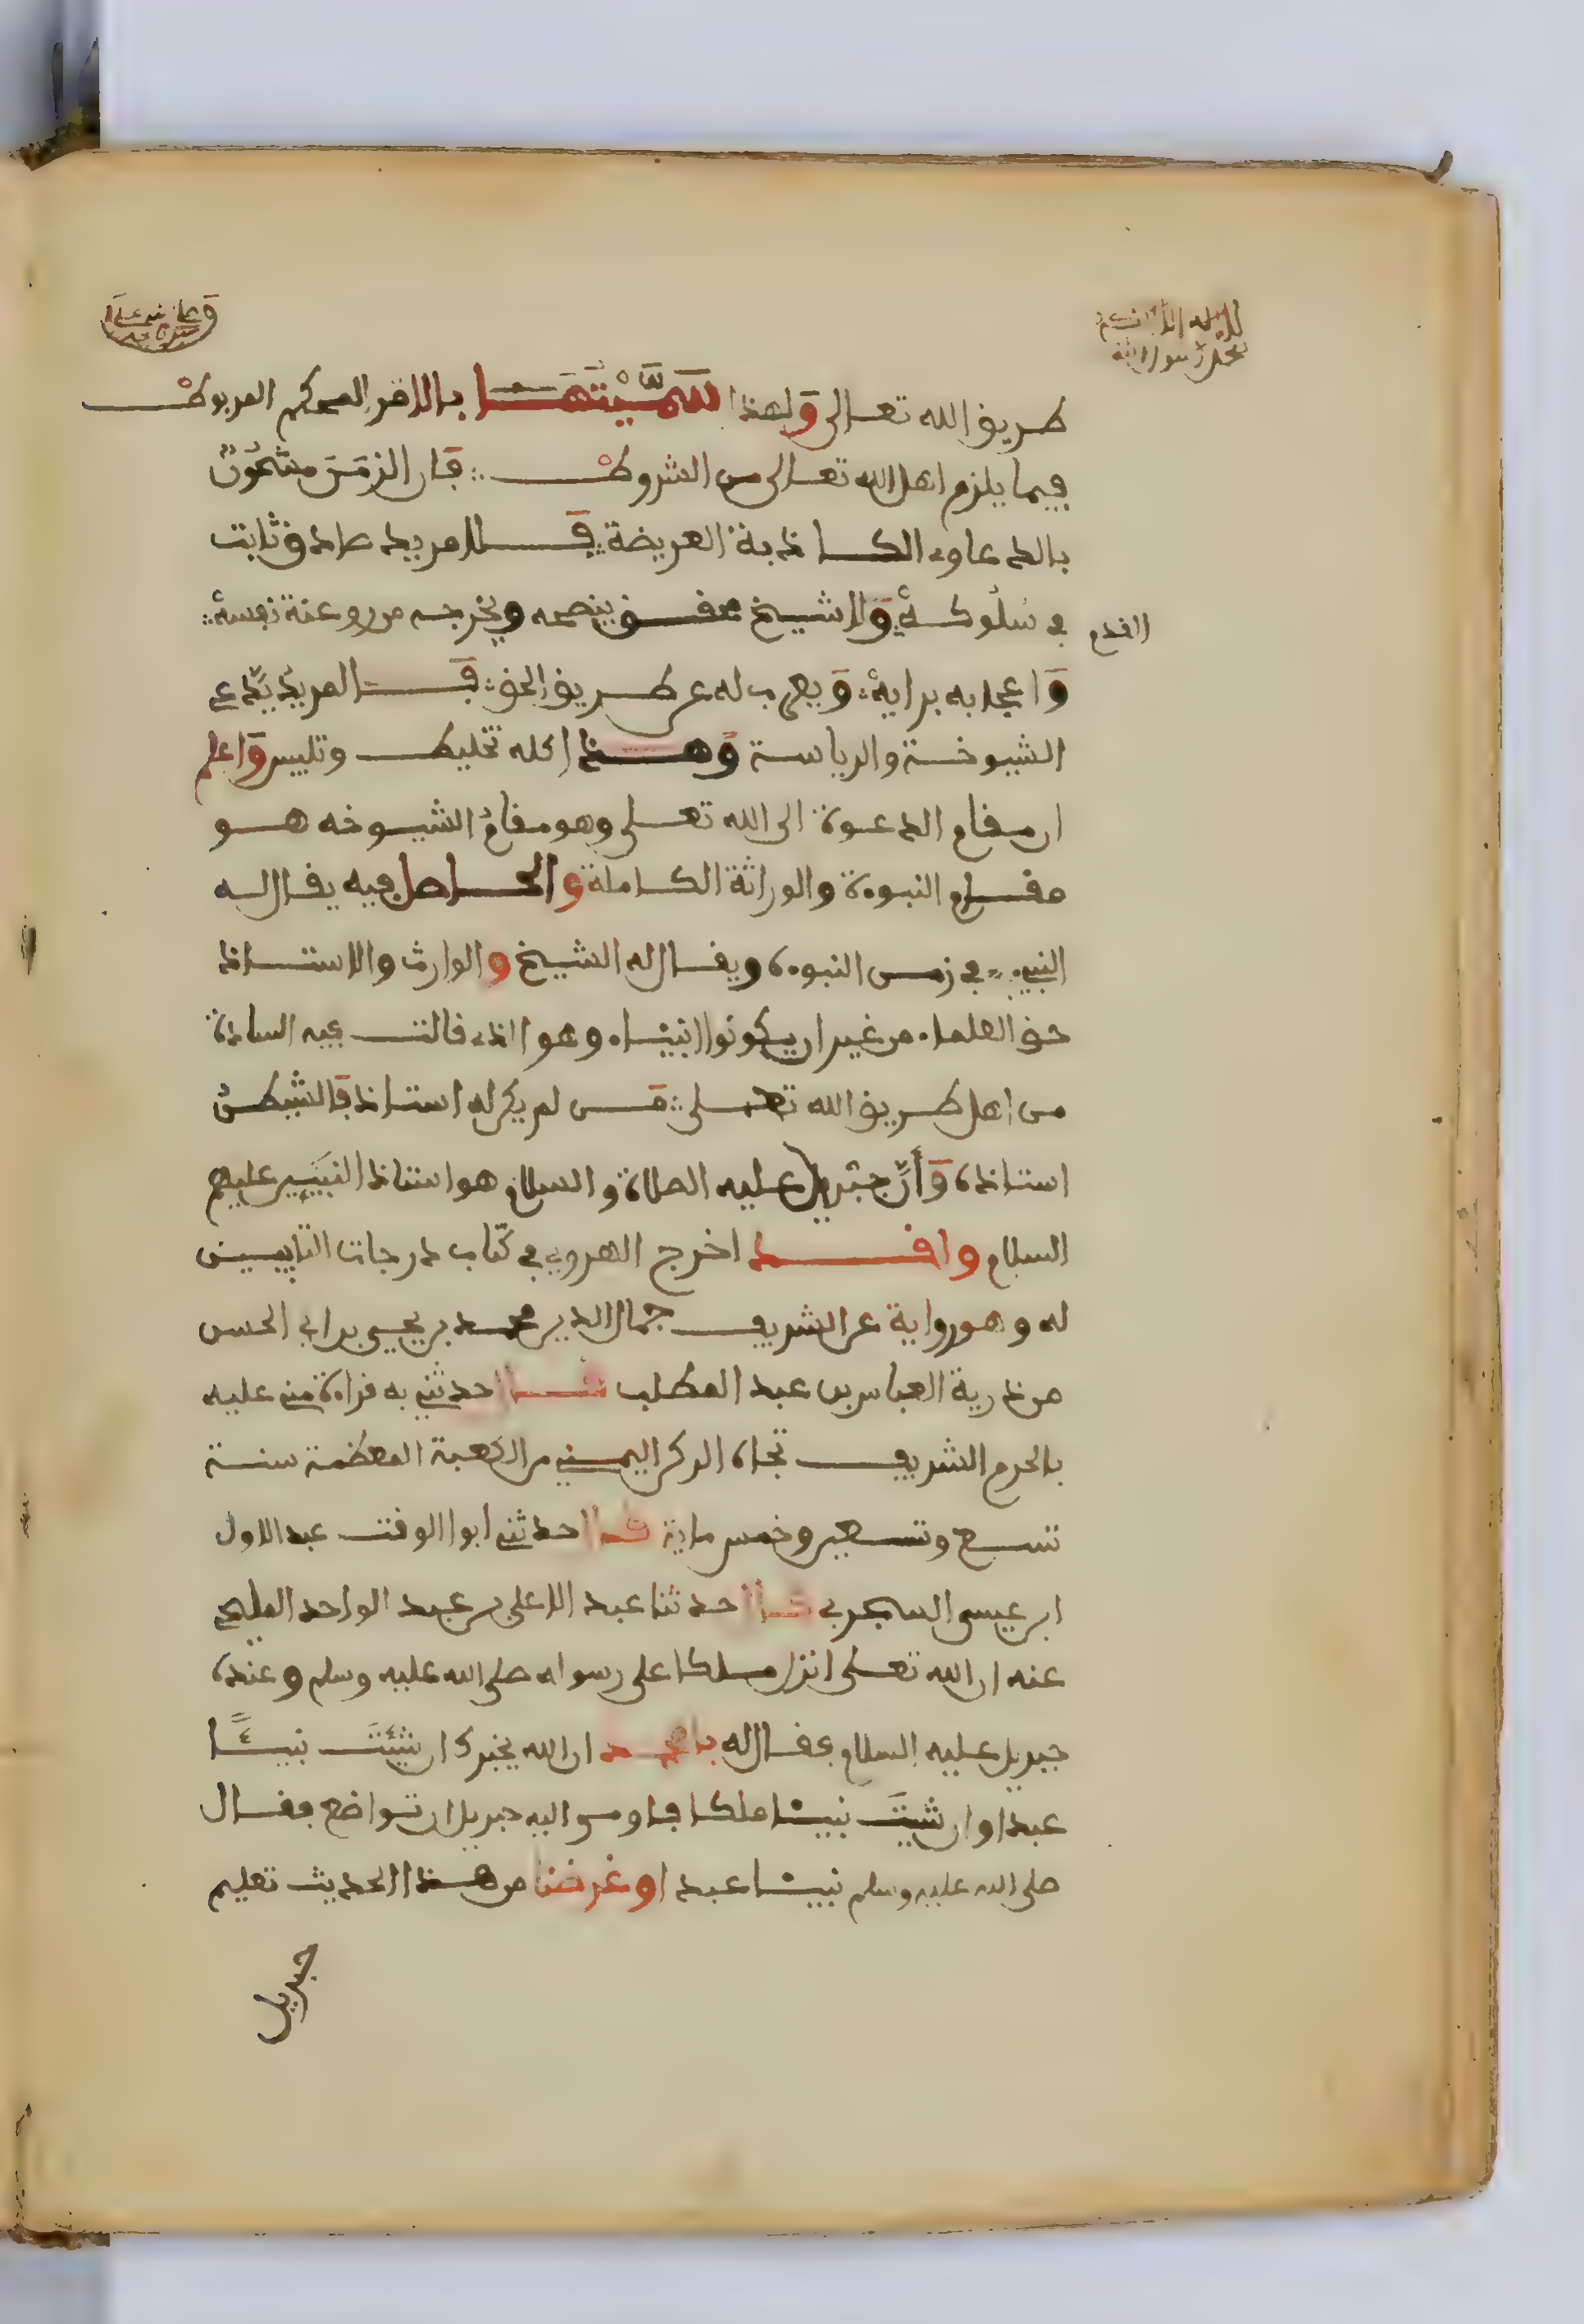 لا إله إلا الله
محمد رسول الله
طريق الله تعالى ولهذا سميتها بالامر المحكم المربوط
فيما يلزم اهل الله تعالى من الشروط فان الزمن مشحون
بالدعاوي الكاذبة العريضة فلا مريد صادق ثابت
القدم
في سلوكه ولا شيخ محقق ينصحه ويخرجه من رعونة نفسه
واعجابه برايه ويعرب له عن طريق الحق فالمريد يدعي
الشيوخة والرياسة وهذا كله تخليط وتلبيس واعلم
ان مقام الدعوة الى الله تعلى وهو مقام الشيوخه هو
مقام النبوة والوراثة الكاملة والحاصل فيه يقال له
النبي في زمن النبوة ويقال له الشيخ والوارث والاستاذ
حق العلماء من غير ان يكونوا انبياء وهو الذي قالت فيه السادة
من اهل طريق الله تعلى من لم يكن له استاذ فالشيطن
استاذه وأن جبريل عليه الصلاة والسلام هو استاذ النبيين عليهم
السلام وافد اخرج الهروي في كتاب درجات التايبين
له وهو رواية عن الشريف جمال الدين محمد بن يحيى بن ابي الحسن
من ذرية العباس بن عبد المطلب قال حدثني به قراءة مني عليه
بالحرم الشريف تجاه الركن اليمني من الكعبة المعظمة سنة
تسع وتسعين وخمس ماية قال حدثني ابوا الوقت عبد الاول
ابن عيسى السجزي قال حدثنا عبد الاعلى بن عبد الواحد المليحي
عنه ان الله تعلى انزل ملكا على رسوله صلى الله عليه وسلم وعنده
جبريل عليه السلام فقال له يا محمد ان الله يخبرك ان شيئت نبيئا
عبدا وان شيت نبيئا ملكا فاومى اليه جبريل ان تواضع فقال
صلى الله عليه وسلم نبيئا عبدا وغرضنا من هذا الحديث تعليم
جبريل